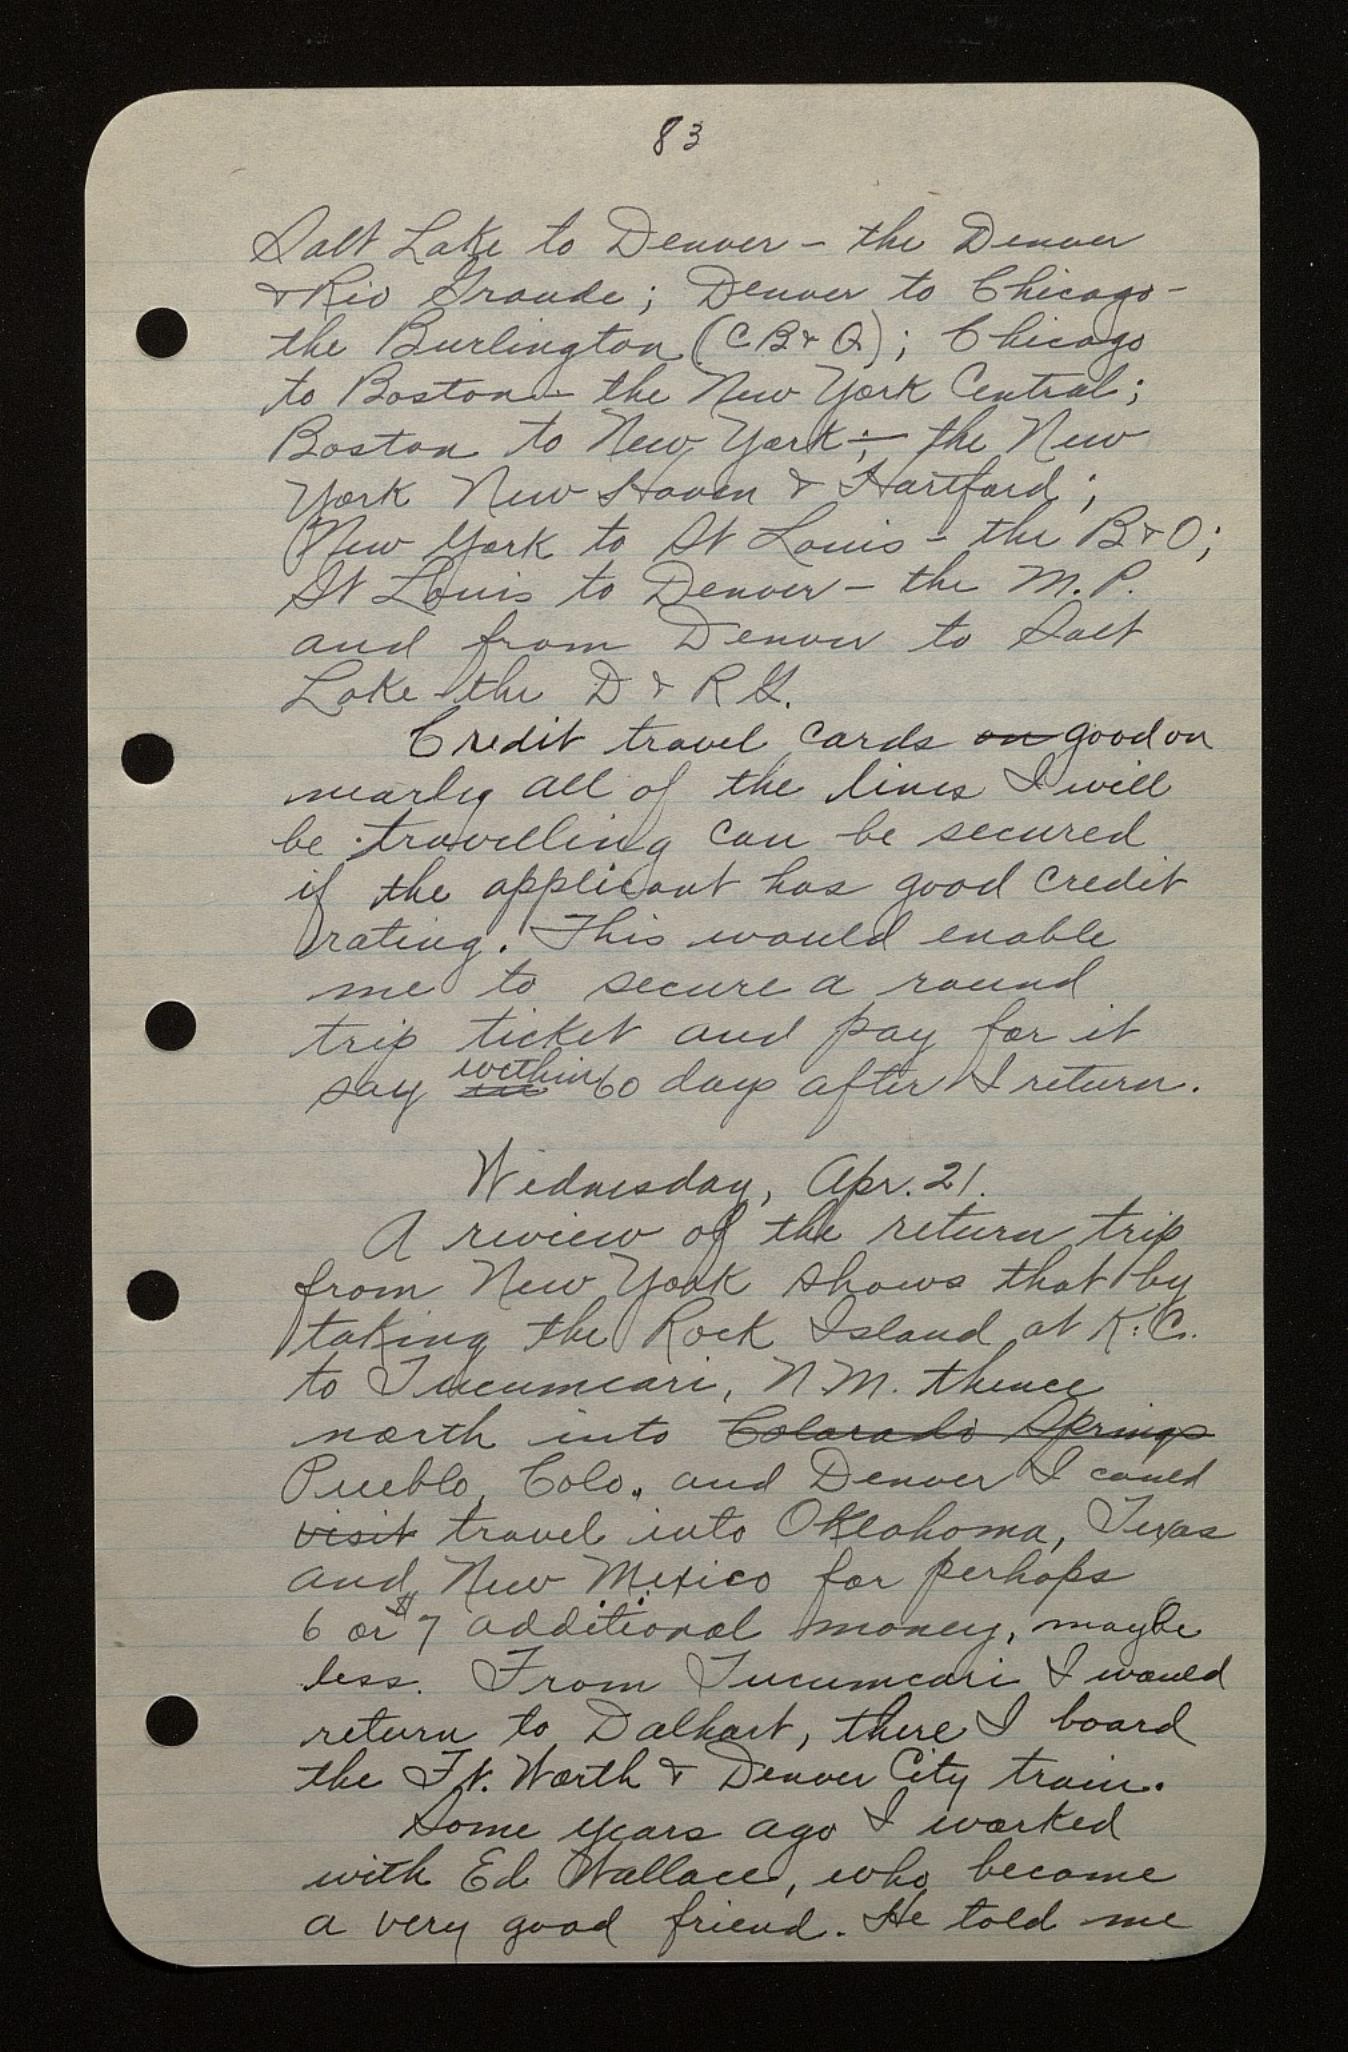 83
Salt Lake to Denver – the Denver
& Rio Grande; Denver to Chicago –
the Burlington (CB & Q); Chicago
to Boston – the New York Central;
Boston to New York; – the New
York New Haven & Hartford;
New York to St Louis – the B & O;
St Louis to Denver – the M.P.
and from Denver to Salt
Lake – the D & R G.
Credit travel cards on good on
nearly all of the lines I will
be travelling can be secured
if the applicant has good credit
rating. This would enable
me to secure a round
trip ticket and pay for it
say within 60 days after I return.
Wednesday, Apr. 21.
A review of the return trip
from New York shows that by
taking the Rock Island at K.C.
to Tucumcari, N.M. thence
north into Colorado Springs
Pueblo, Colo. and Denver I could
visit travel into Oklahoma, Texas
and New Mexico for perhaps
6 or $7 additional money, maybe
less. From Tucumcari I would
return to Dalhart, there I board
the Ft. Worth & Denver City train.
Some years ago I worked
with Ed Wallace, who became
a very good friend. He told me